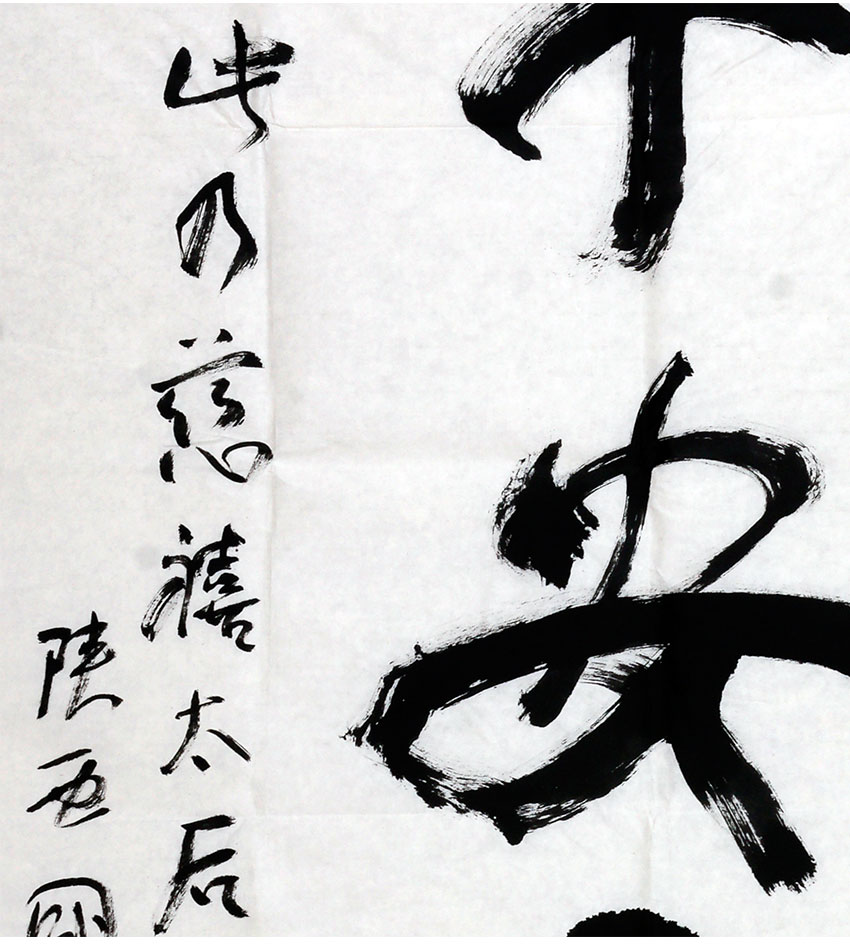 安
此乃慈禧太后
陕西